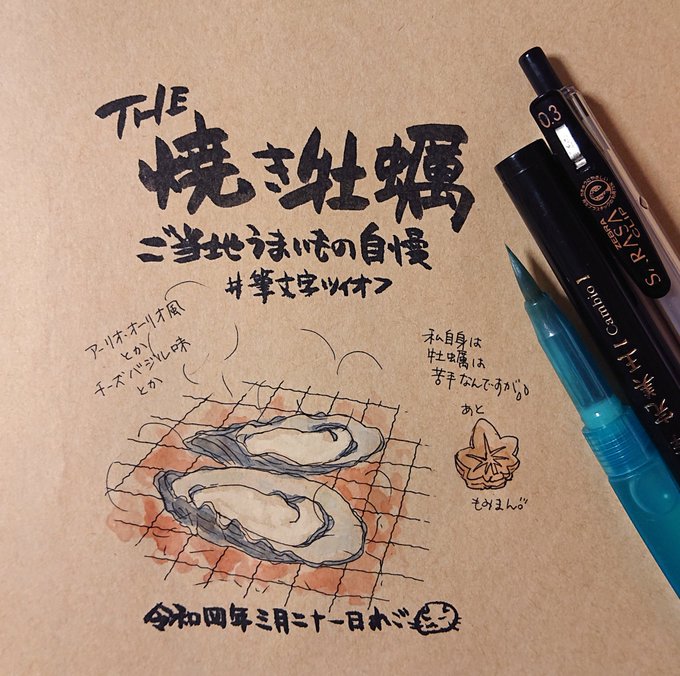 THE
焼き牡蠣
ご当地うまいもの自慢
#筆文字ツイオフ
アーリオ・オーリオ風
とか
チーズバジル味
とか
私自身は
牡蠣は
苦手なんですが。。
あと
もみまん。
令和四年三月二十一日れご
0.3
S. RASA
CLIP
ZEBRA
Cambio 1